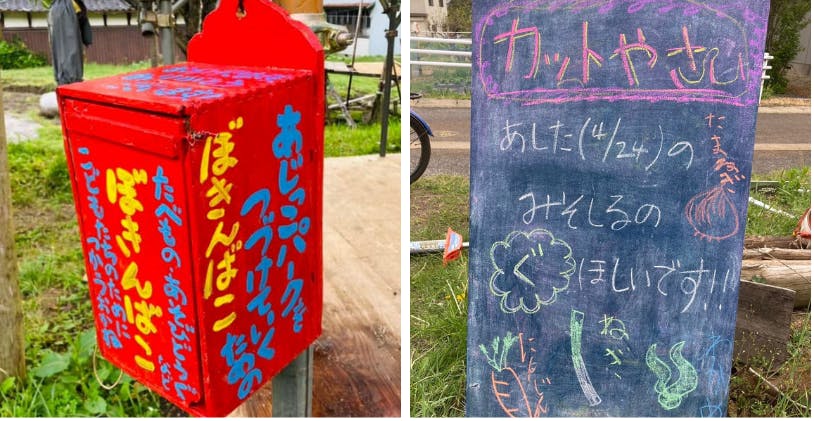 あじっこパークを
つづけていく
ための
ぼきんばこ
たべもの・あそびどうぐ
ぼきんばこ
こどもたちのために
カットやさい
あした(4/24)の
みそしるの
ぐ
ほしいです!!
たまねぎ
にんじん
ねぎ